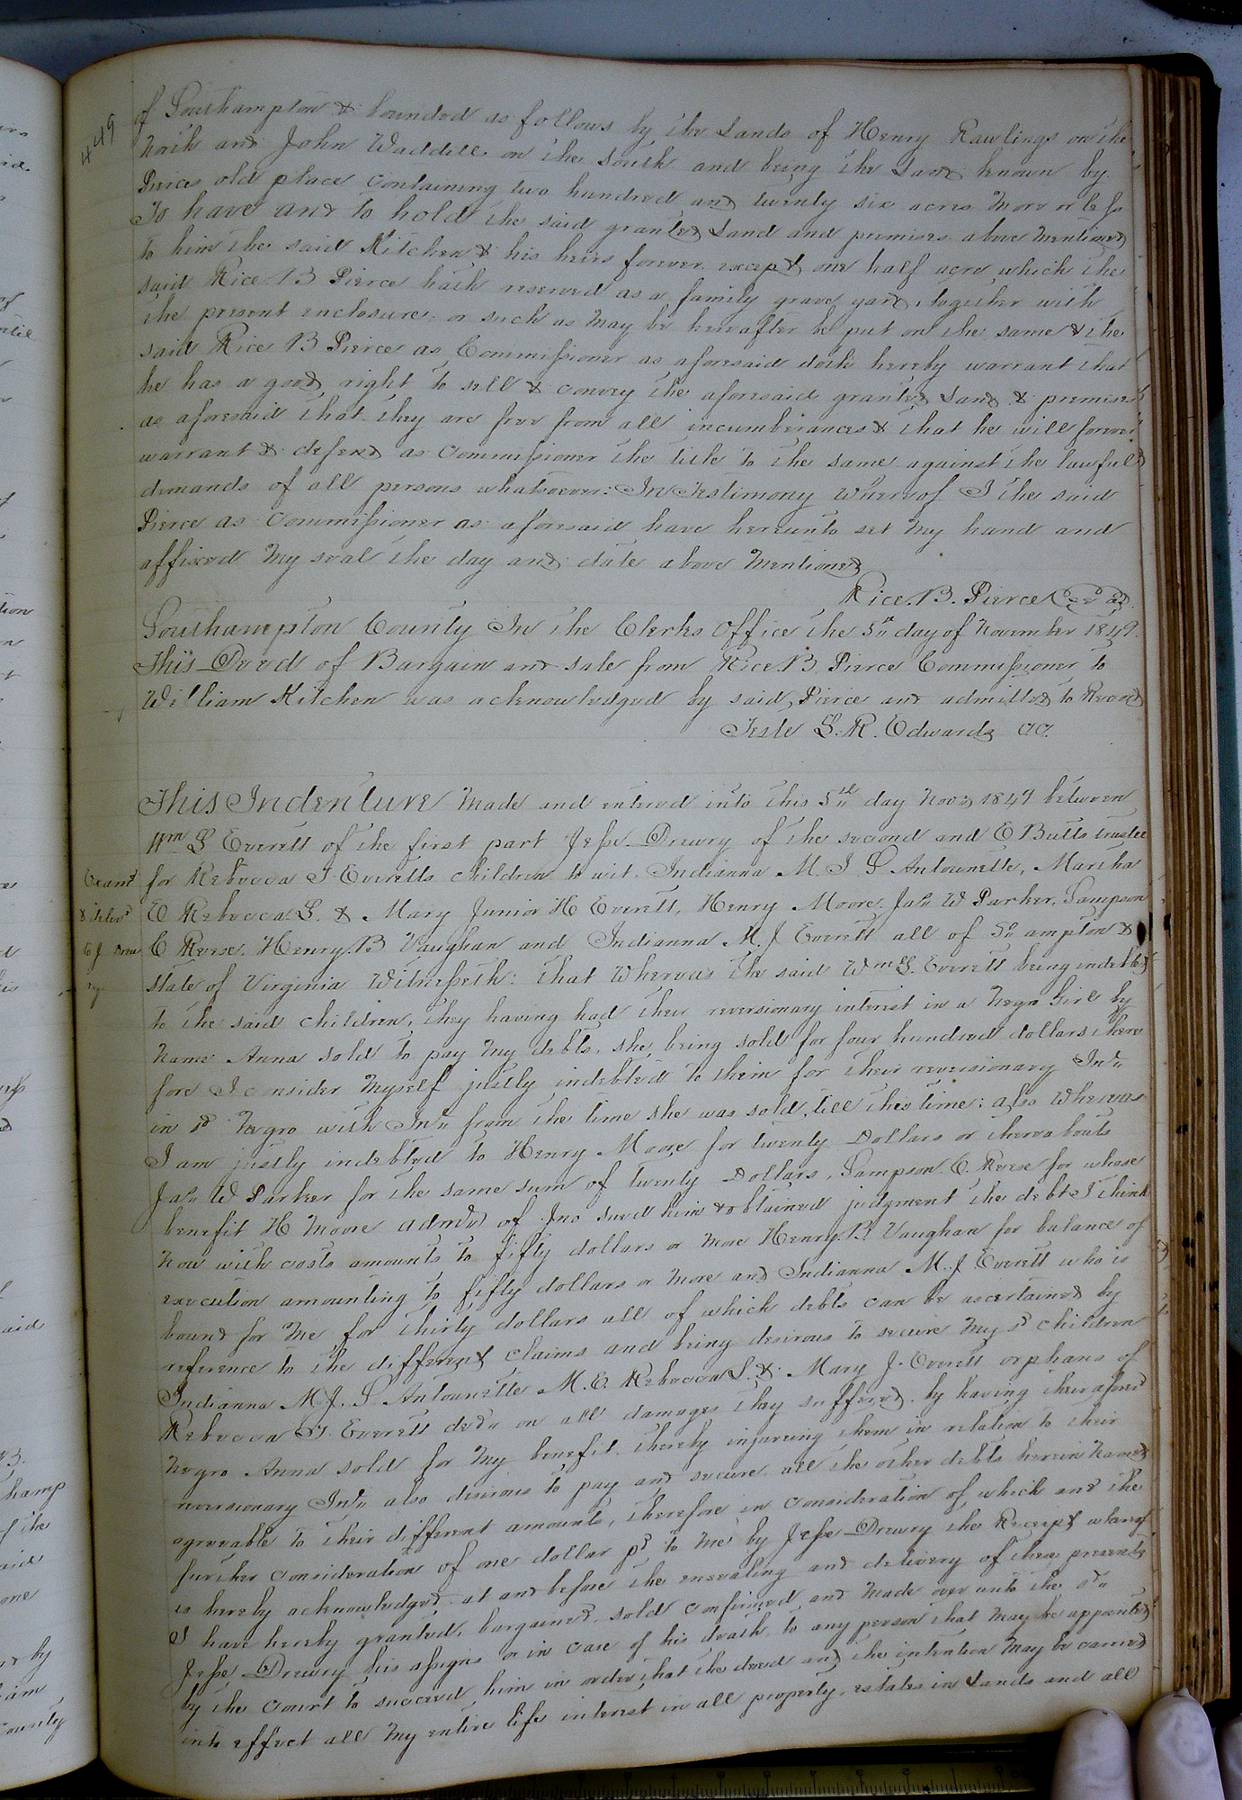 449
of Southampton & bounded as follows by the Lands of Henry Rawlings on the
North and John Waddill on the South and being the Land known by
Peirces old place containing two hundred and twenty six acres more or less
To have and to hold the said granted Land and premises above mentioned
to him the said Kitchen & his heirs forever except one half acre which the
said Rice B Peirce hath reserved as a family grave yard, together with
the present enclosure or such as may be hereafter be put on the same & the
said Rice B Peirce as Commissioner as aforesaid doth hereby warrant that
he has a good right to sell & convey the aforesaid granted Land & premises
as aforesaid that they are free from all incumberances & that he will forever
warrant & defend as Commissioner the title to the same against the lawful
demands of all persons whatsoever: In Testimony whereof I the said
Pierce as Commissioner as aforesaid have hereunto set my hand and
affixed my seal the day and date above mentioned
Rice. B. Peirce
Southampton County In the Clerks Office the 5th day of November 1849.
This Deed of Bargain and sale from Rice B Peirce Commissioner to
William Kitchen was acknowledged by said Peirce and admitted to Record
Teste L. R. Edwards
This Indenture made and entered into this 5th day Nov 1849 between
Wm L Everett of the first part Jesse Drewry of the second and E Butts trustee
for Rebecca T Everetts children to wit. Indianna M. J L Antounette, Martha
E Rebecca L. & Mary Junior H Everett, Henry Moore. Jas W Parker, Sampson
C Reese. Henry B Vaughan and Indianna M. J Everett all of So ampton &
state of Virginia Witnesseth: that whereas the said Wm L. Everett being indebted
to the said children, they having had their reversionary interest in a Negro Girl by
name Anna sold to pay my debts, she being sold for four hundred dollars there
fore I consider myself justly indebted to them for their reversionary Int
in sd Negro with Int from the time she was sold, till this time: also Whereas
I am justly indebted to Henry Moore for twenty Dollars or thereabouts
Jas W Parker for the same sum of twenty Dollars, Sampson C. Reese for whose
benefit H Moore of Jno sued him & obtained judgment the debt I think
now with costs amounts to fifty dollars or more Henry B Vaughan for balance of
execution amounting to fifty dollars or more and Indianna M. J Everett who is
bound for me for thirty dollars all of which debts can be ascertained by
reference to the different claims and being desirous to secure my sd children
Indianna M. J. L Antounette M. E. Rebecca L. & Mary J. Everett orphans of
Rebecca T. Everett decd on all damages they suffered, by having
Negro Anna sold for my benefit thereby injuring them in relation to their
reversionary Int also desirous to pay and secure all the other debts herein named
agreeable to their different amounts, therefore in consideration of which and the
further consideration of one dollar pd to me by Jesse Drewry the Receipt whereof
is hereby acknowledged at and before the ensealing and delivery of these presents
I have hereby granted, bargained sold confirmed and made over unto the sd
Jesse Drewry his assigns or in case of his death, to any person that may be appointed
by the Court to succeed him in order that the deed and the intention may be carried
into effect all my entire life interest in all property, estates in Lands and all